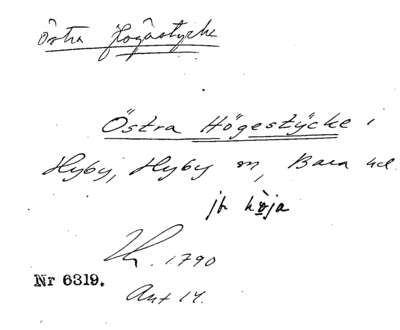 Östra Högestycke
Östra Högestÿcke i
Hyby, Hyby sn, Bara hd.
jfr höja
1790
Nr 6319.
Ant 14.